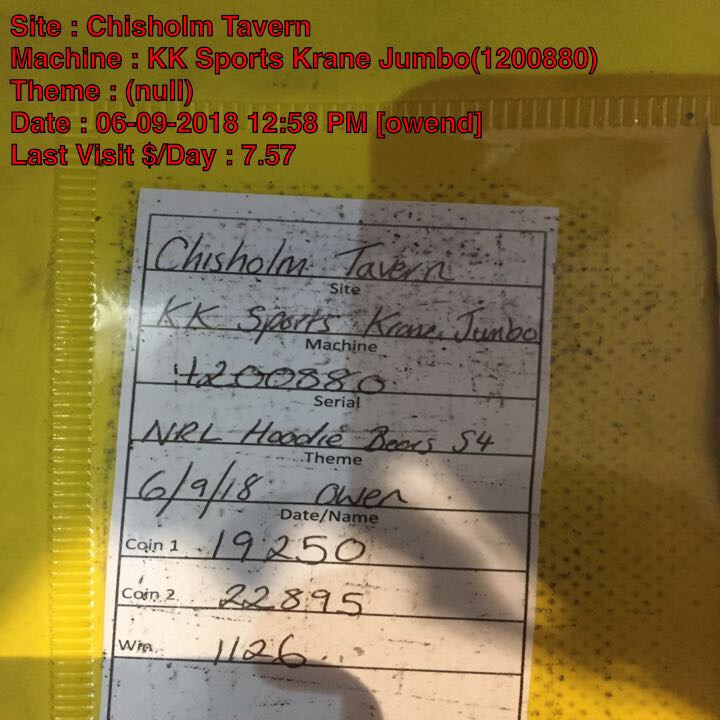 Site : Chisholm Tavern
Machine : KK Sports Krane Jumbo(1200880)
Theme : (null)
Date : 06-09-2018 12:58 PM [owend]
Last Visit $/Day : 7.57
Chisholm Tavern
Site
KK Sports Krane Jumbo
Machine
1200880
Serial
NRL Hoodie Bears S4
Theme
6/9/18 Owen
Date/Name
Coin 1 19250
Coin 2 22895
Win 1126